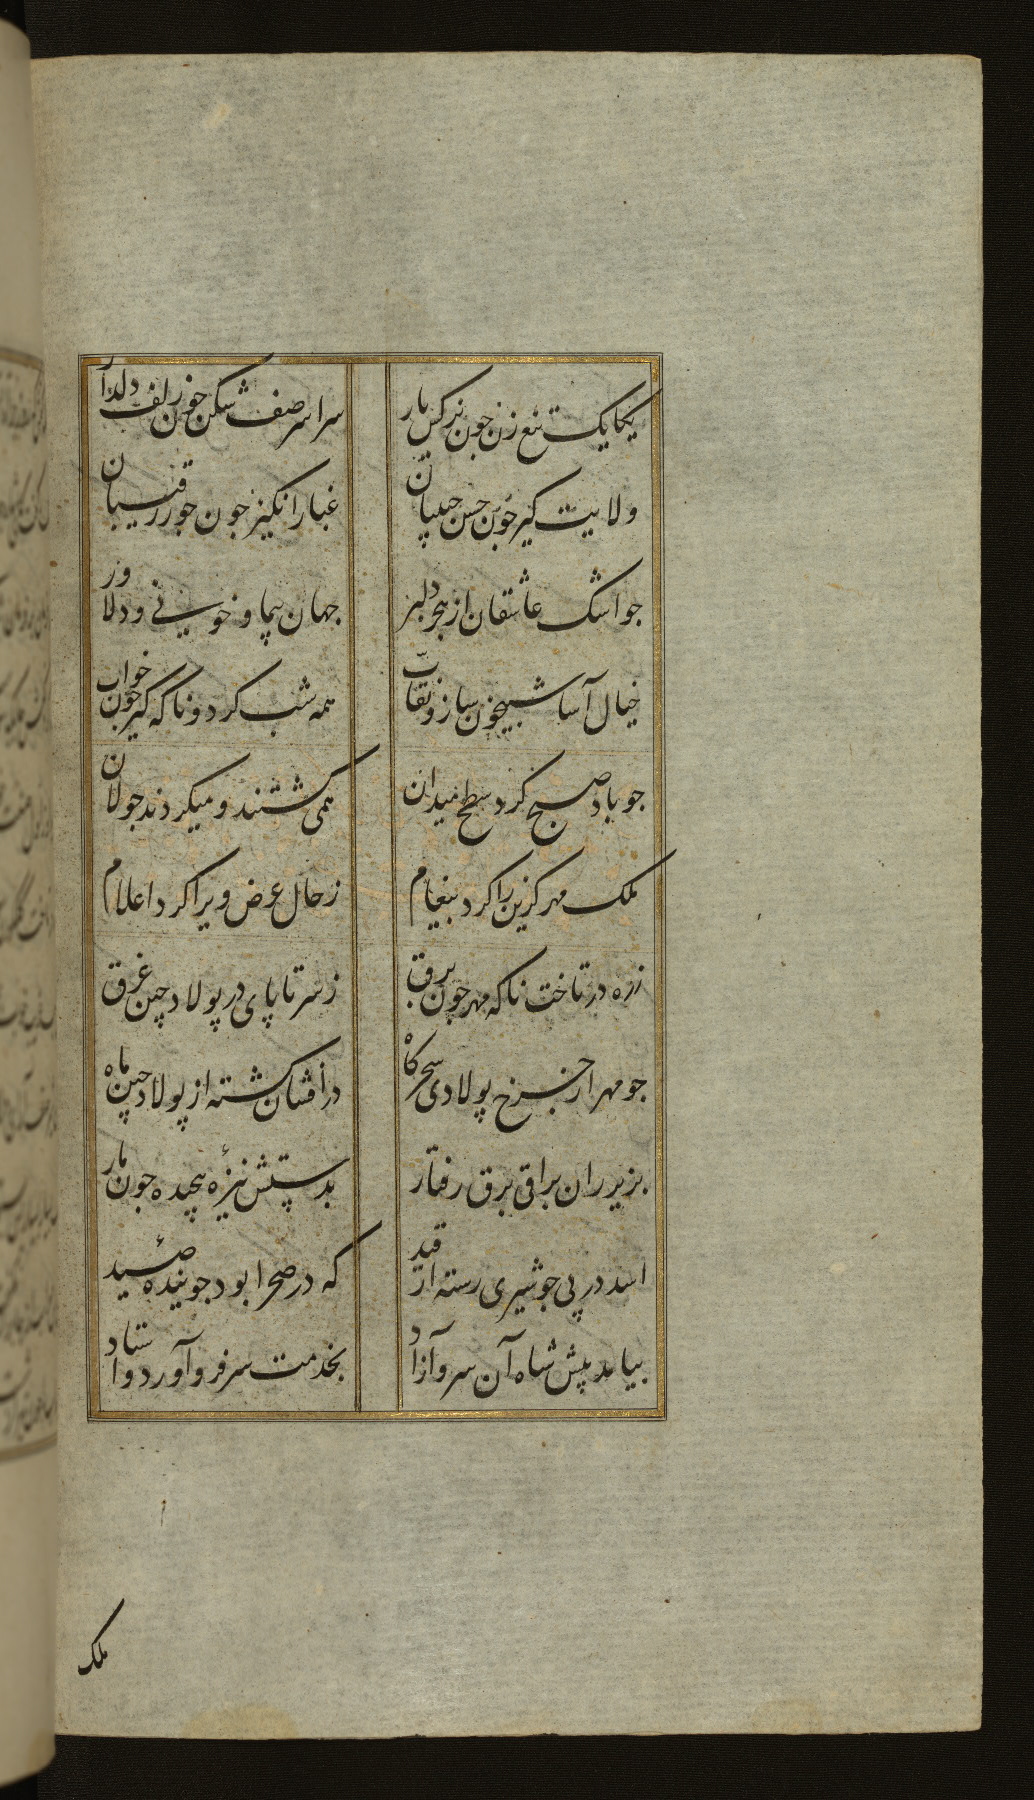 یکایک تیغ زن جون نرکس یار
سراسر صف شکن جون زلف دلدار
ولایت کیر جون حسن حبیبان
غبار انکیز جون جور رقیبان
جو اشک عاشقان از هجر دلبر
جهان پیما و خونی و دلاور
خیال آسا شبیخون ساز و نقاب
همه شب کرد و ناکه کیر جون خواب
جو باد صبح کرد سطح میدان
همی کشتند و میکردند جولان
ملک مهر کزین را کرد پیغام
ز حال عرض ویرا کرد اعلام
زره در تاخت ناکه مهر جون برق
ز سر تا پای در پولاد چین غرق
جو مهر از جرخ پولادی سحرکاه
درافشان کشته از پولاد چین ماه
بزیر ران براقی برق رفتار
بدستش نیزهٔ پیچیده جون مار
اسد در پی جو شیری رسته از قید
که در صحرا بود جوینده صید
بیامد پیش شاه آن سرو آزاد
بخدمت سر فرو آورد و استاد
ملک